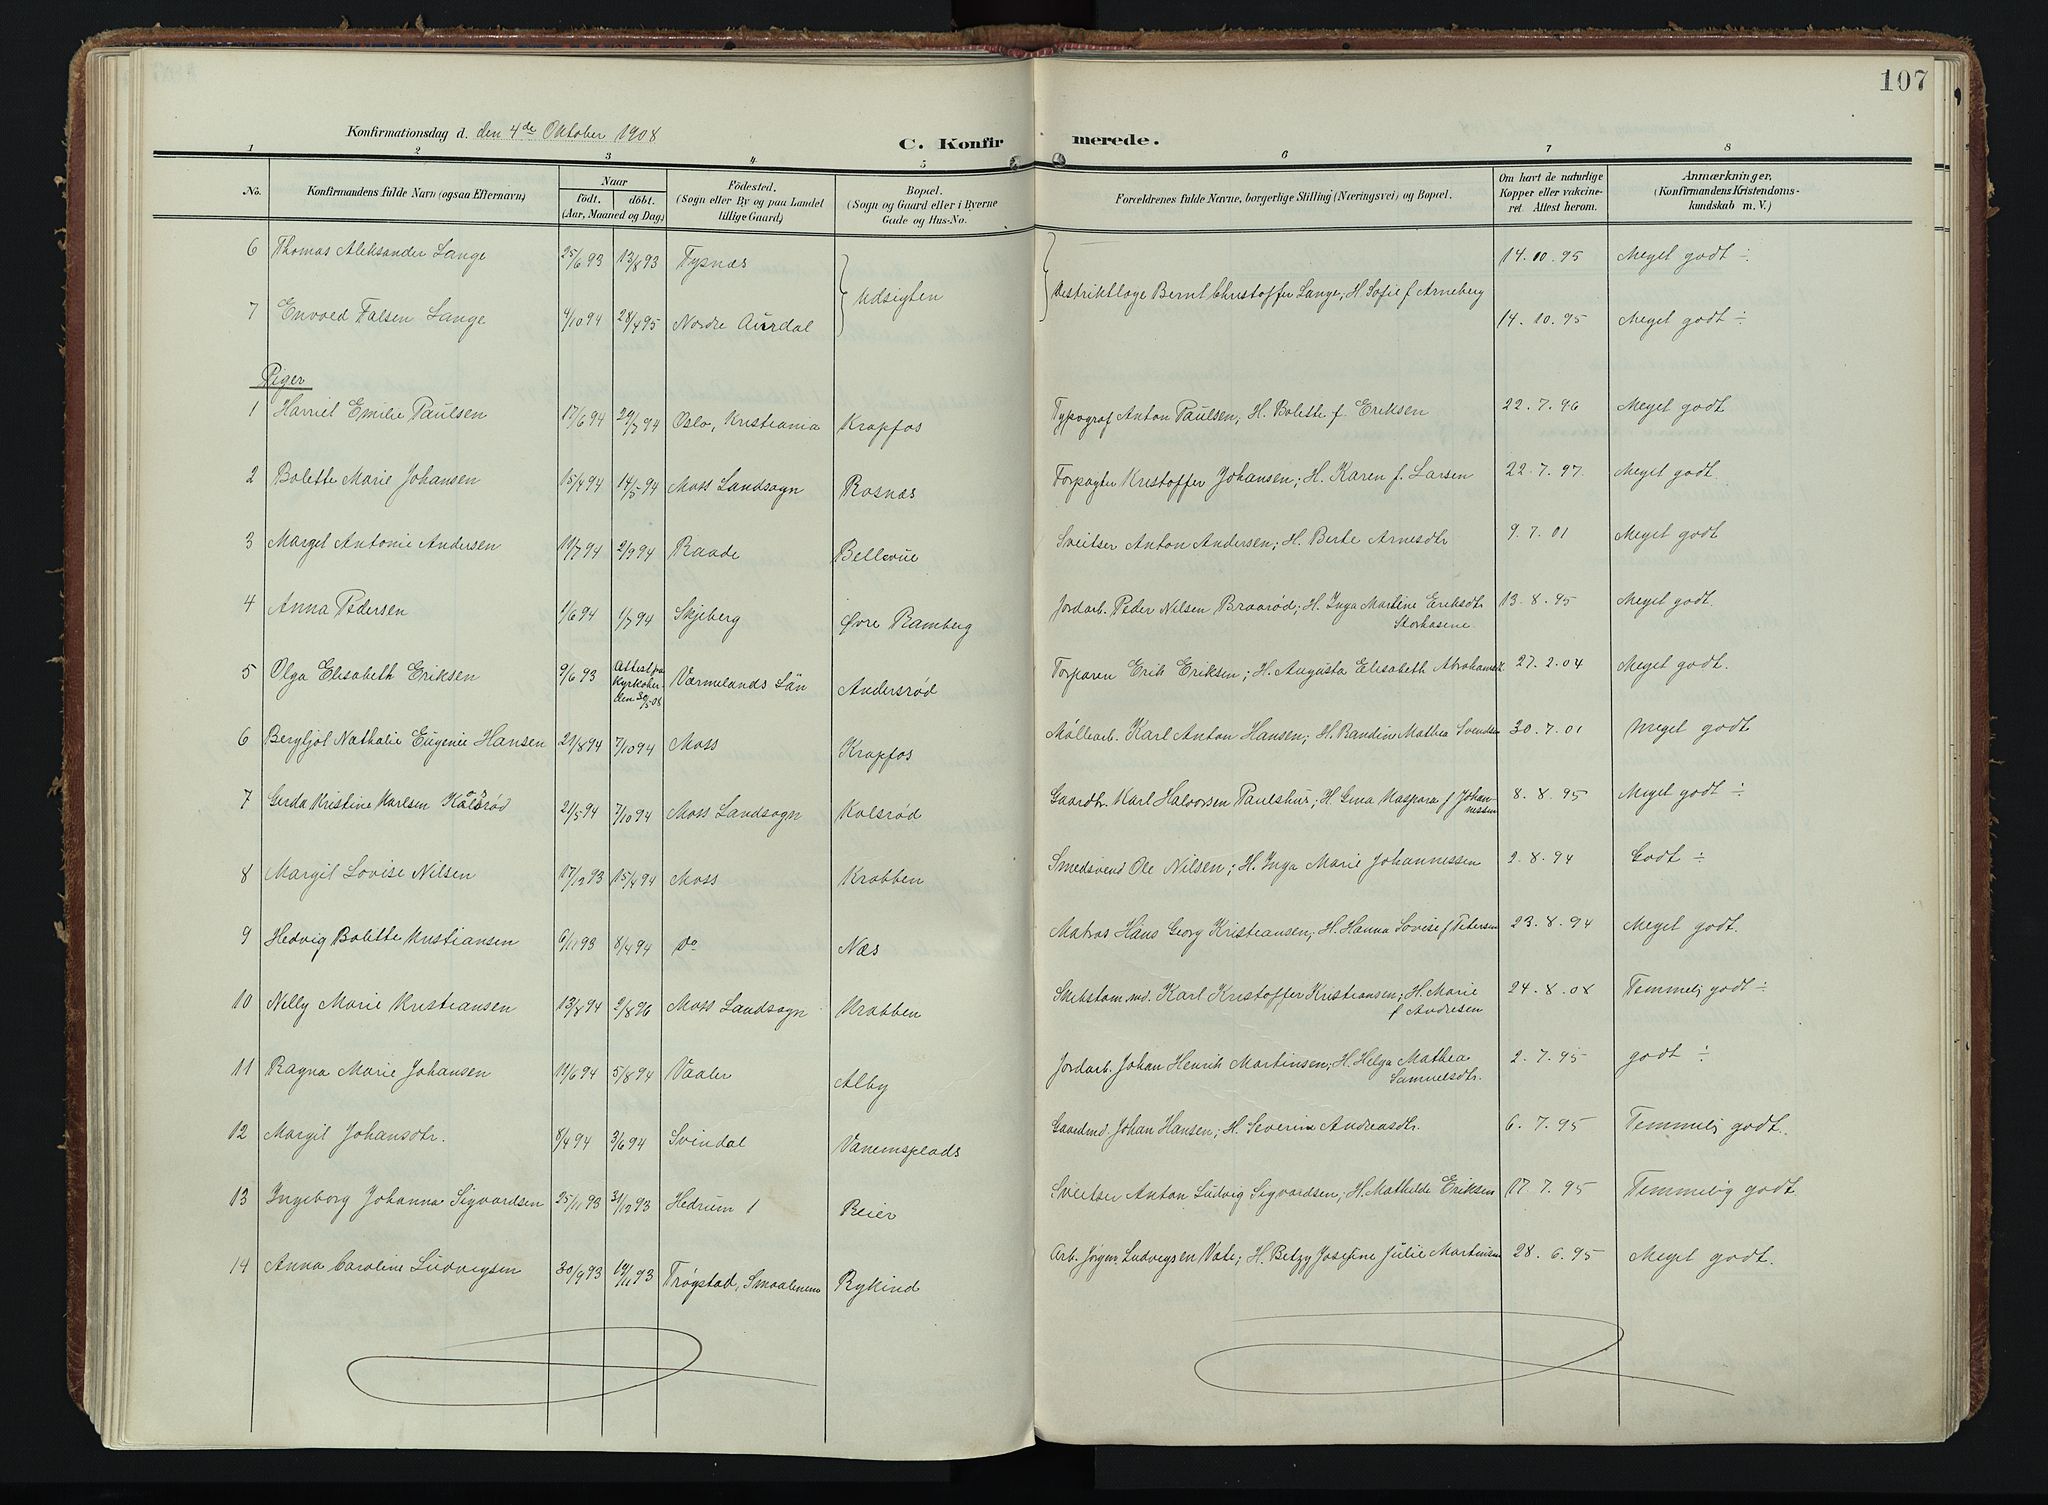 107
Konfirmationsdag d. den 4de Oktober 1908
C. Konfirmerede.
1 2 3 4 5 6 7 8
No. Konfirmandens fulde Navn (ogsaa Efternavn) Naar født. døbt. (Aar, Maaned og Dag) Fødested. (Sogn eller By og paa Landet tillige Gaard) Bopæl. (Sogn og Gaard eller i Byerne Gade og Hus-No. Forældrenes fulde Navne, borgerlige Stilling (Næringsvei) og Bopæl. Om havt de naturlige Kopper eller vakcineret. Attest herom. Anmærkninger, (Konfirmandens Kristendomskundskab m. V.)
6 Thomas Aleksander Lange 25/6 93 13/8 93 Tysnæs } Udsigten { Distriktlæge Bernt Christoffer Lange, H. Sofie f Arneberg 14. 10. 95 Meget godt ÷
7 Envold Falsen Lange 4/10 94 28/4 95 Nordre Aurdal 14. 10. 95 Meget godt ÷
Piger
1 Harriet Emilie Paulsen 17/6 94 29/7 94 Oslo, Kristiania Krapfos Typograf Anton Paulsen, H. Bolette f. Eriksen 22. 7. 96 Meget godt
2 Bolette Marie Johansen 15/4 94 14/5 94 Moss Landsogn Rosnæs Forpagter Kristoffer Johansen; H. Karen f. Larsen 22. 7. 97. Meget godt.
3 Margit Antonie Andersen 19/7 94 2/9 94 Raade Bellevue Sveitser Anton Andersen; H. Berte Arnesdtr 9. 7. 01 Meget godt
4 Anna Pedersen 1/6 94 1/7 94 Skjeberg Øvre Ramberg Jordarb. Peder Nilsen Braarød; H. Inga Martine Eriksdtr Storhasene 13. 8. 95 Meget godt.
5 Olga Elisabeth Eriksen 9/6 93 Attest fra Kyrkoher. den 30/5 08 Værmlands Län Andersrød Torparen Erik Eriksen; H. Augusta Elisabeth Abrahamsdt 27. 2. 04 Meget godt.
6 Bergljot Nathalie Eugenie Hansen 29/8 94 7/10 94 Moss Krapfos Møllearb. Karl Anton Hansen; H. Randine Mathea Svendsen 30. 7. 01 Meget godt
7 Gerda Kristine Karlsen Kolsrød 21/5 94 7/10 94 Moss Landsogn Kolsrød Gaardbr. Karl Halvorsen Paulshus; H. Gina Kaspara f Johannessen 8. 8. 95 Meget godt ÷
8 Margit Lovise Nilsen 17/12 93 15/4 94 Moss Krabben Smedsvend Ole Nilsen; H. Inga Marie Johannessen 2. 8. 94 Godt ÷
9 Hedvig Bolette Kristiansen 6/11 93 8/4 94 do Næs Matros Hans Georg Kristiansen; H. Hanna Lovise f Petersen 23. 8. 94 Meget godt.
10 Nelly Marie Kristiansen 13/8 94 2/8 96 Moss Landsogn Krabben Skibstømmd. Karl Kristoffer Kristiansen; H. Marie f Andresen 24. 8. 08 Temmeli godt ÷
11 Ragna Marie Johansen 19/6 94 5/8 94 Vaaler Alby Jordarb. Johan Henrik Martinsen; H. Helga Mathea Samuelsdtr. 2. 7. 95 godt ÷
12 Margit Johansdtr. 8/4 94 3/6 94 Svindal Vanemsplads Gaardmd Johan Hansen; H. Severine Andreasdtr. 6. 7. 95 Temmeli godt.
13 Ingeborg Johanna Sigvardsen 25/11 93 31/12 93 Hedrum Reier Sveitser Anton Ludvig Sigvardsen; H. Mathilde Eriksen 17. 7. 95 Temmelig godt
14 Anna Caroline Ludvigsen 30/9 93 19/11 93 Trøgstad, Smaalenene Rykind Arb. Jørgen Ludvigsen Vate; H. Betzy Josefine Julie Martinsen 28. 6. 95 Meget godt.